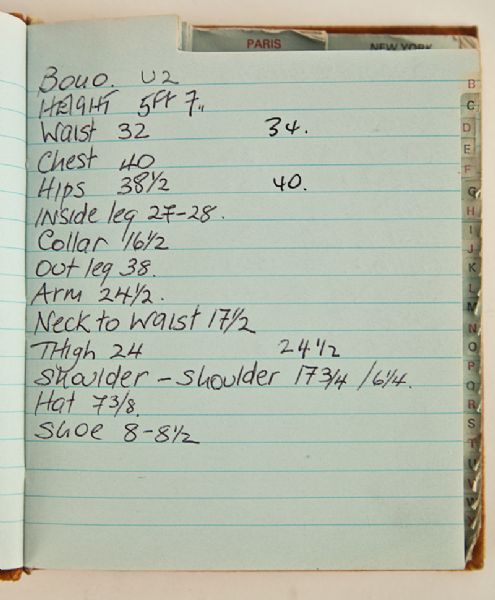 PARIS
NEW YORK
Bono. U2
HEIGHT 5ft 7"
Waist 32 34.
Chest 40
Hips 38½ 40.
Inside leg 27-28.
Collar 16½
Out leg 38.
Arm 24½.
Neck to Waist 17½
THigh 24 24½
Shoulder - Shoulder 17¾ / 6¼.
Hat 7⅜.
Shoe 8-8½
B
C
D
E
F
G
H
I
J
K
L
M
N
O
P
Q
R
S
T
U
V
W